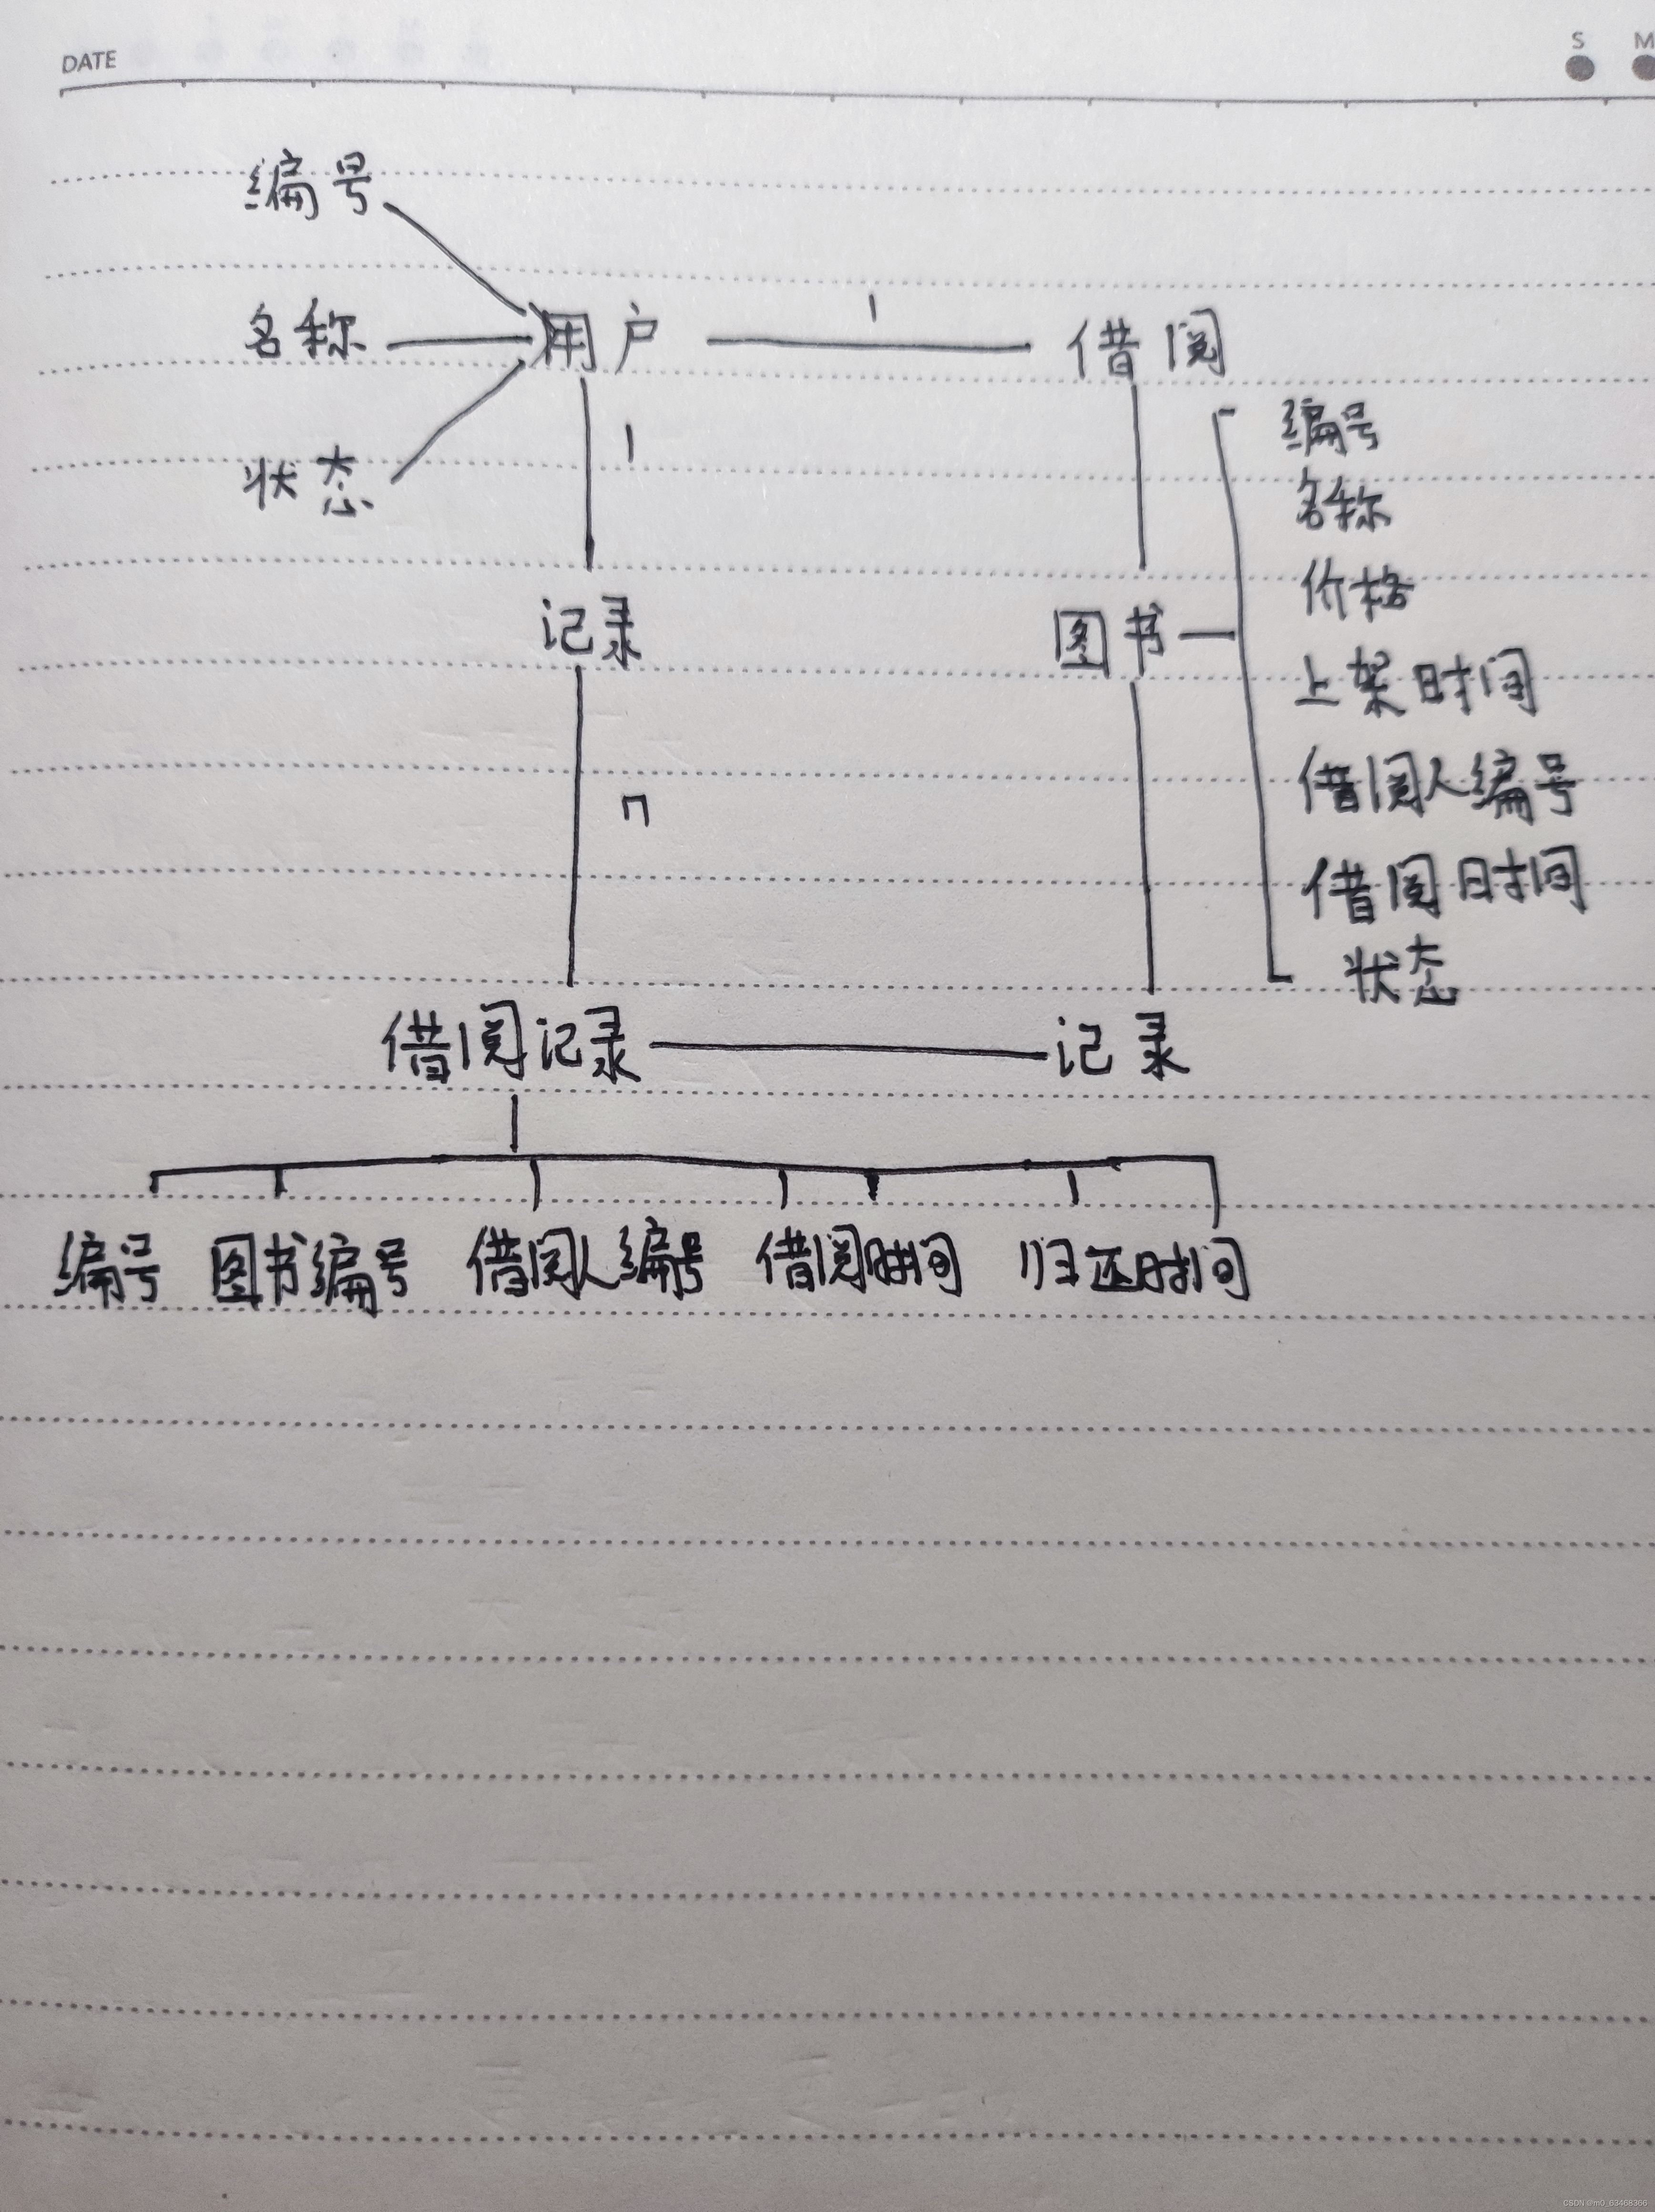 DATE
S M
编号
名称 用户 1 借阅
状态 1
编号
名称
价格
记录 图书
上架时间
借阅人编号
n
借阅时间
状态
借阅记录 记录
编号 图书编号 借阅人编号 借阅时间 归还时间
CSDN @m0_63468366